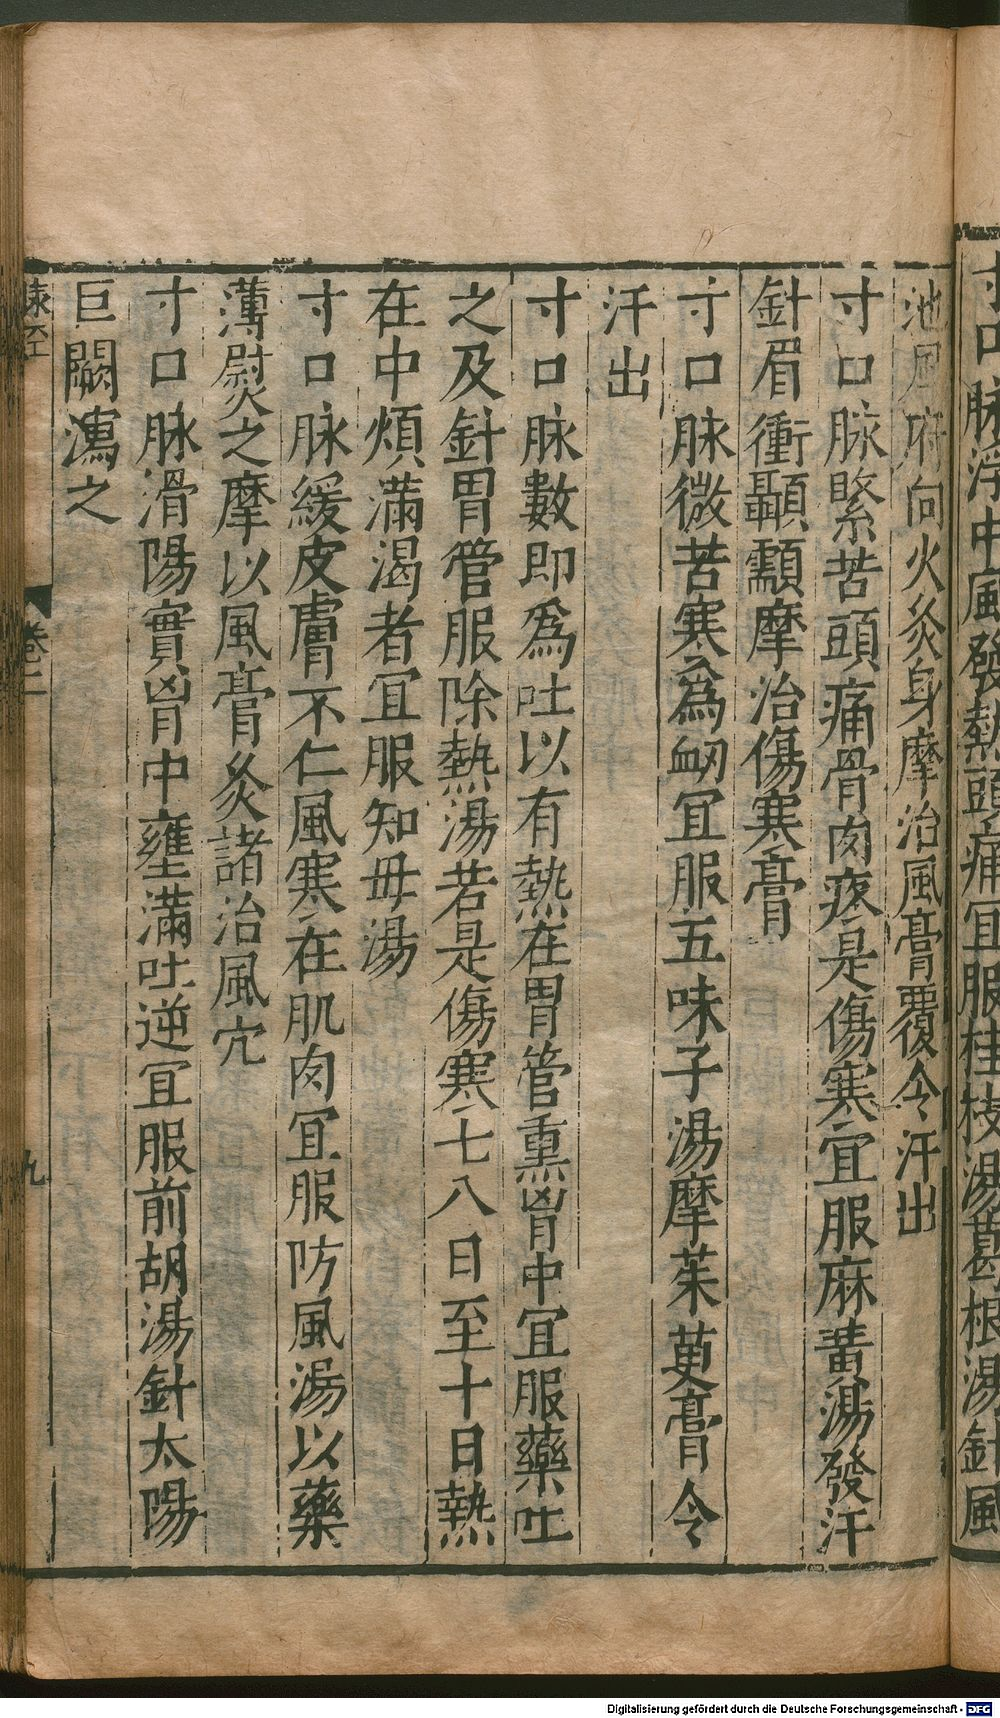 寸口脉浮中風發熱頭痛宜服桂枝湯葛根湯針風
池風府向火灸身摩治風膏覆令汗出
寸口脉緊苦頭痛骨肉疼是傷寒宜服麻黃湯發汗
針眉衝顳顬摩治傷寒膏
寸口脉微苦寒為衂宜服五味子湯摩茱萸膏令
汗出
寸口脉數即為吐以有熱在胃管熏胷中宜服藥吐
之及針胃管服除熱湯若是傷寒七八日至十日熱
在中煩滿渴者宜服知母湯
寸口脉緩皮膚不仁風寒在肌肉宜服防風湯以藥
薄熨之摩以風膏灸諸治風穴
寸口脉滑陽實胷中壅滿吐逆宜服前胡湯針太陽
巨闕瀉之
脉經
卷二
九
Digitalisierung gefördert durch die Deutsche Forschungsgemeinschaft - DFG